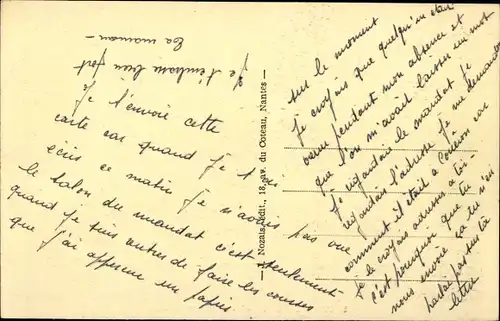 Je t'envoie cette
carte car quand je t'ai
écris ce matin je n'avais pas vue
le talon du mandat c'est seulement
quand je suis autres de faire les courses
que j'ai apperçue un papier
sur le moment
je croyais que quelqu'un était
venu pendant mon absence et
que l'on m'avait laisser un mot
Je regardais le mandat je
regardais l'adresse je me demandais
comment il était à Couëron car
je le croyais adressé à toi
c'est pourquoi que tu
nous envoie ça tu n'en
parlais pas sur ta
lettre
Je t'embrasse bien fort
ta maman -
J. Nozais, édit., 18, av. du Coteau, Nantes -